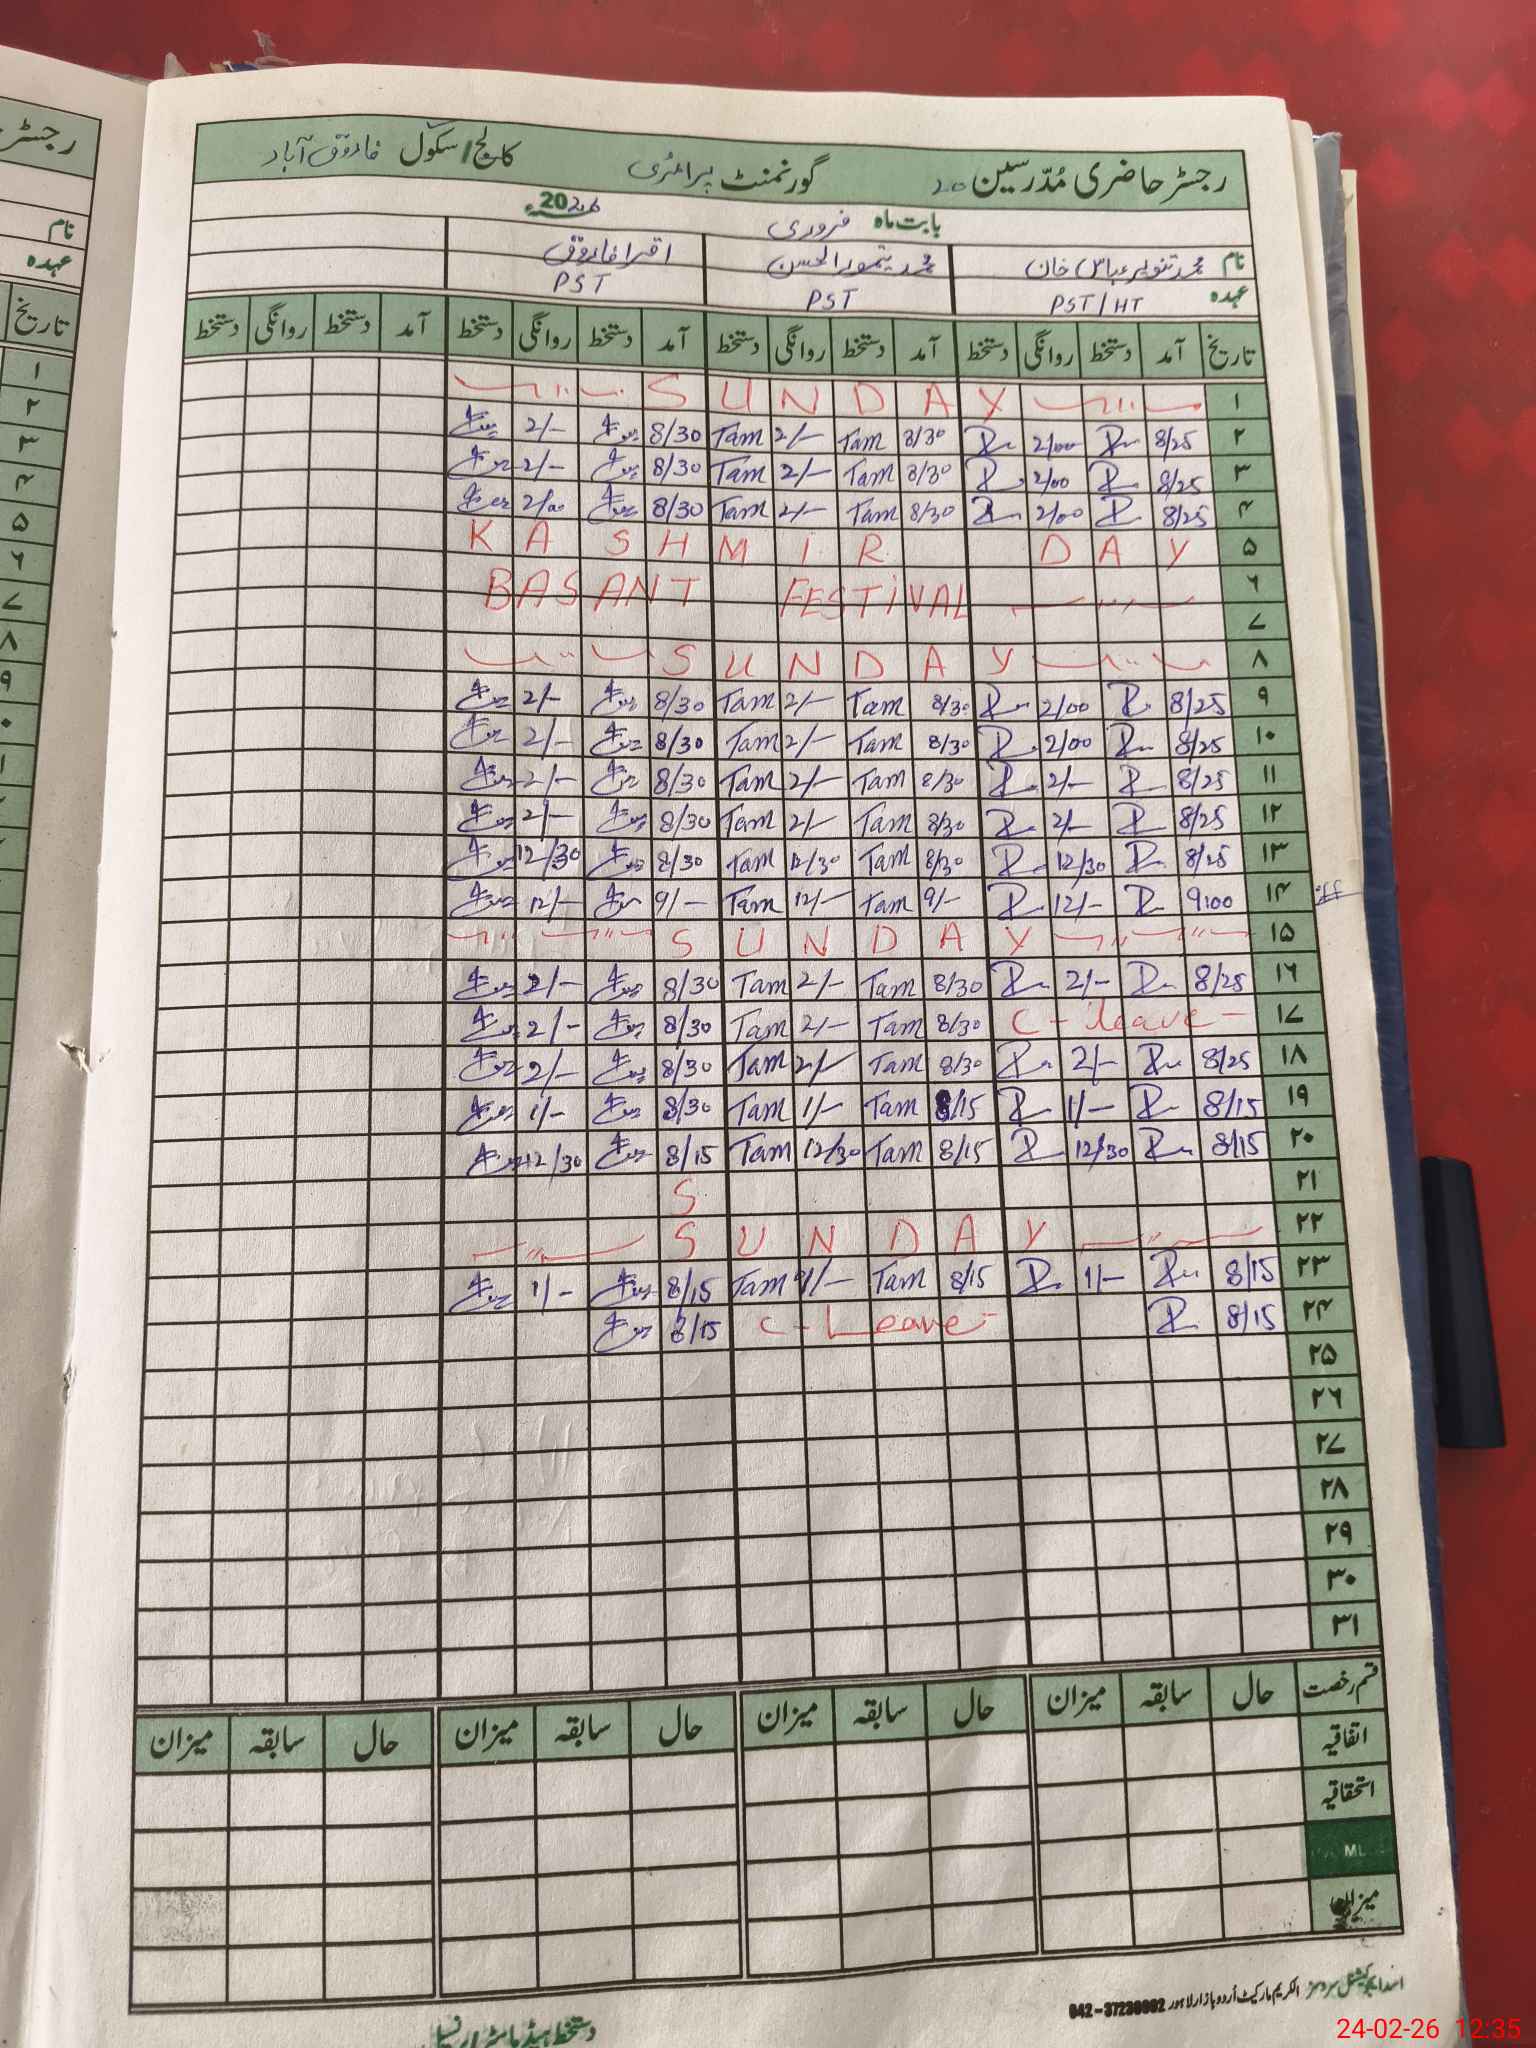 رجسٹر حاضری مُدرسین 20 گورنمنٹ پرائمری کالج/سکول فاروق آباد
بابت ماہ فروری 2026ء
نام محمد تنویر عباس خان محمد تیمور الحسن اقرا فاروق
عہدہ PST/HT PST PST
تاریخ آمد دستخط روانگی دستخط آمد دستخط روانگی دستخط آمد دستخط روانگی دستخط آمد دستخط روانگی دستخط
۱ SUNDAY
۲ 8/25 2/00 8/30 Tam 2/- Tam 8/30 2/-
۳ 8/25 2/00 8/30 Tam 2/- Tam 8/30 2/-
۴ 8/25 2/00 8/30 Tam 2/- Tam 8/30 2/00
۵ KASHMIR DAY
۶ BASANT FESTIVAL
۷
۸ SUNDAY
۹ 8/25 2/00 8/30 Tam 2/- Tam 8/30 2/-
۱۰ 8/25 2/00 8/30 Tam 2/- Tam 8/30 2/-
۱۱ 8/25 2/- 8/30 Tam 2/- Tam 8/30 2/-
۱۲ 8/25 2/- 8/30 Tam 2/- Tam 8/30 2/-
۱۳ 8/25 12/30 8/30 Tam 12/30 Tam 8/30 12/30
۱۴ 9:00 12/- 9/- Tam 12/- Tam 9/- 12/-
۱۵ SUNDAY
۱۶ 8/25 2/- 8/30 Tam 2/- Tam 8/30 2/-
۱۷ C-leave- 8/30 Tam 2/- Tam 8/30 2/-
۱۸ 8/25 2/- 8/30 Tam 2/- Tam 8/30 2/-
۱۹ 8/15 1/- 8/15 Tam 1/- Tam 8/30 1/-
۲۰ 8/15 12/30 8/15 Tam 12/30 Tam 8/15 12/30
۲۱ S
۲۲ SUNDAY
۲۳ 8/15 1/- 8/15 Tam 1/- Tam 8/15 1/-
۲۴ 8/15 C-Leave- 8/15
۲۵
۲۶
۲۷
۲۸
۲۹
۳۰
۳۱
قسم رخصت حال سابقہ میزان حال سابقہ میزان حال سابقہ میزان حال سابقہ میزان
اتفاقیہ
استحقاقیہ
ML
میزان
الکریم مارکیٹ اُردو بازار لاہور
دستخط ہیڈ ماسٹر/پرنسپل
24-02-26 12:35
رجسٹر
نام
عہدہ
تاریخ
۱
۲
۳
۴
۵
۶
۷
۸
۹